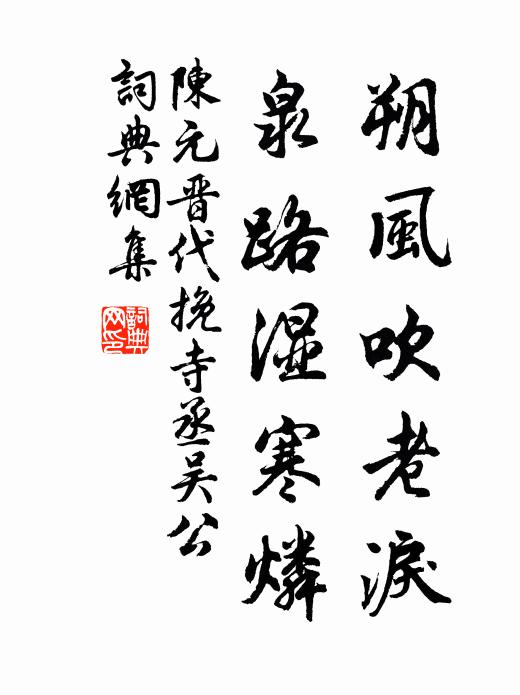 朔風吹老淚
泉路湿寒燐
陳元晋代挽寺丞吴公
詞典網集
詞典網印